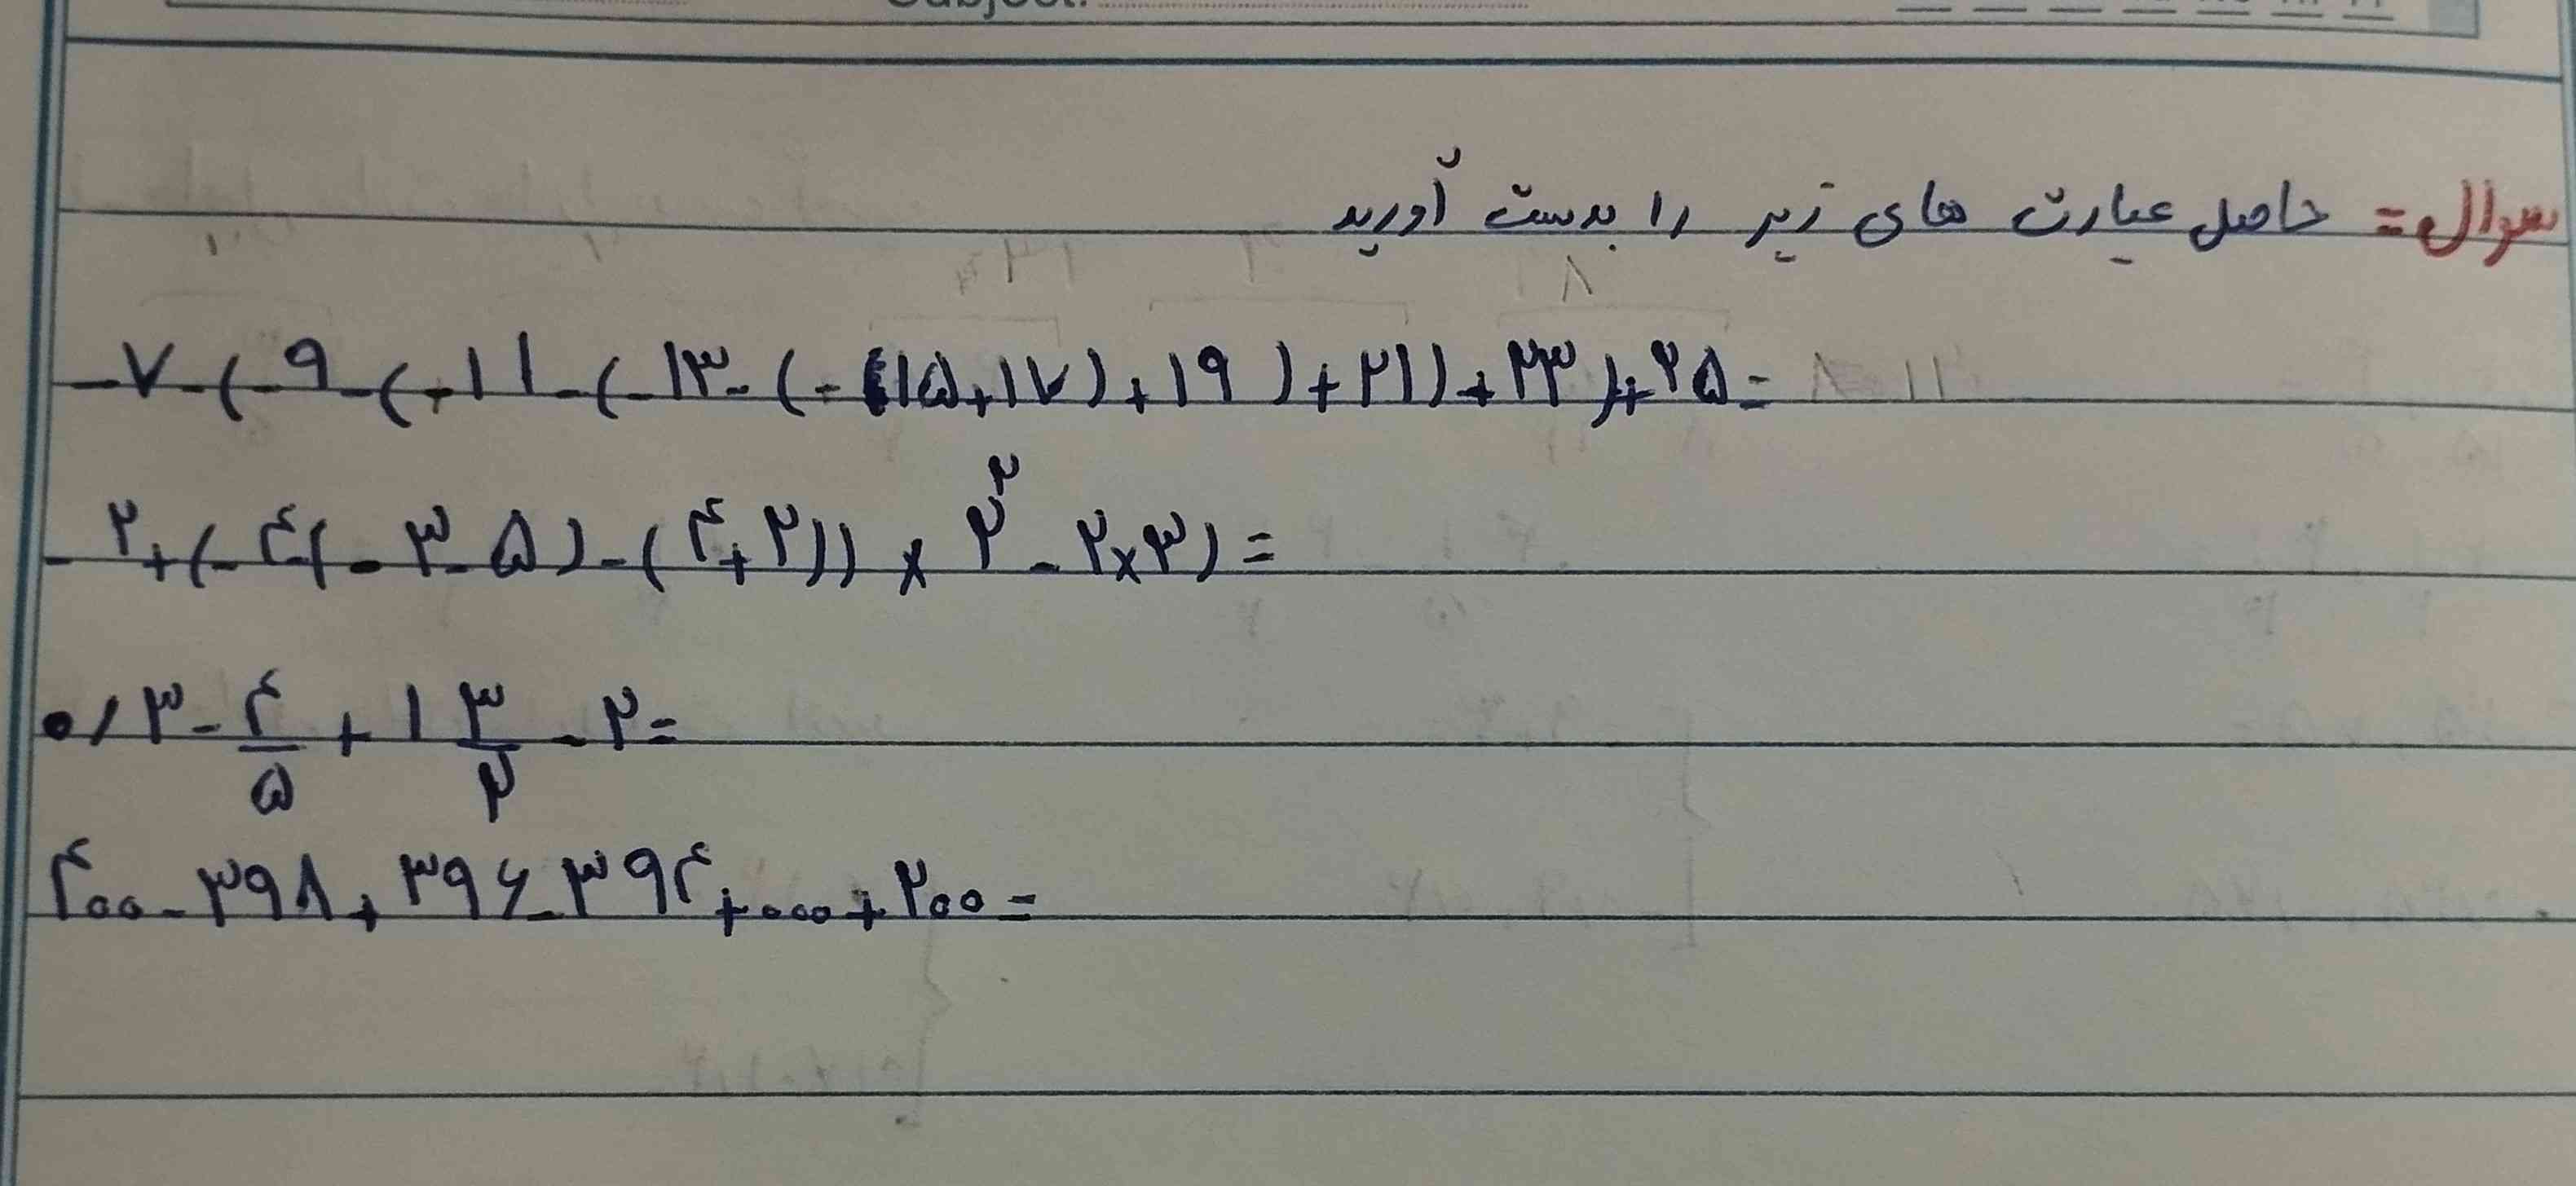 Subject:
سوال = حاصل عبارت های زیر را بدست آورید
-۷-(-۹-(-۱۱-(-۱۳-(-(۱۵+۱۷)+۱۹)+۲۱)+۲۳)+۲۵=
-۲+(-۴(-۳-۵)-(۴+۲))×۲^۳-۲×۳)=
۰/۳-۴/۵+۱ ۳/۲-۲=
۴۰۰-۳۹۸+۳۹۶-۳۹۴+...+۲۰۰=